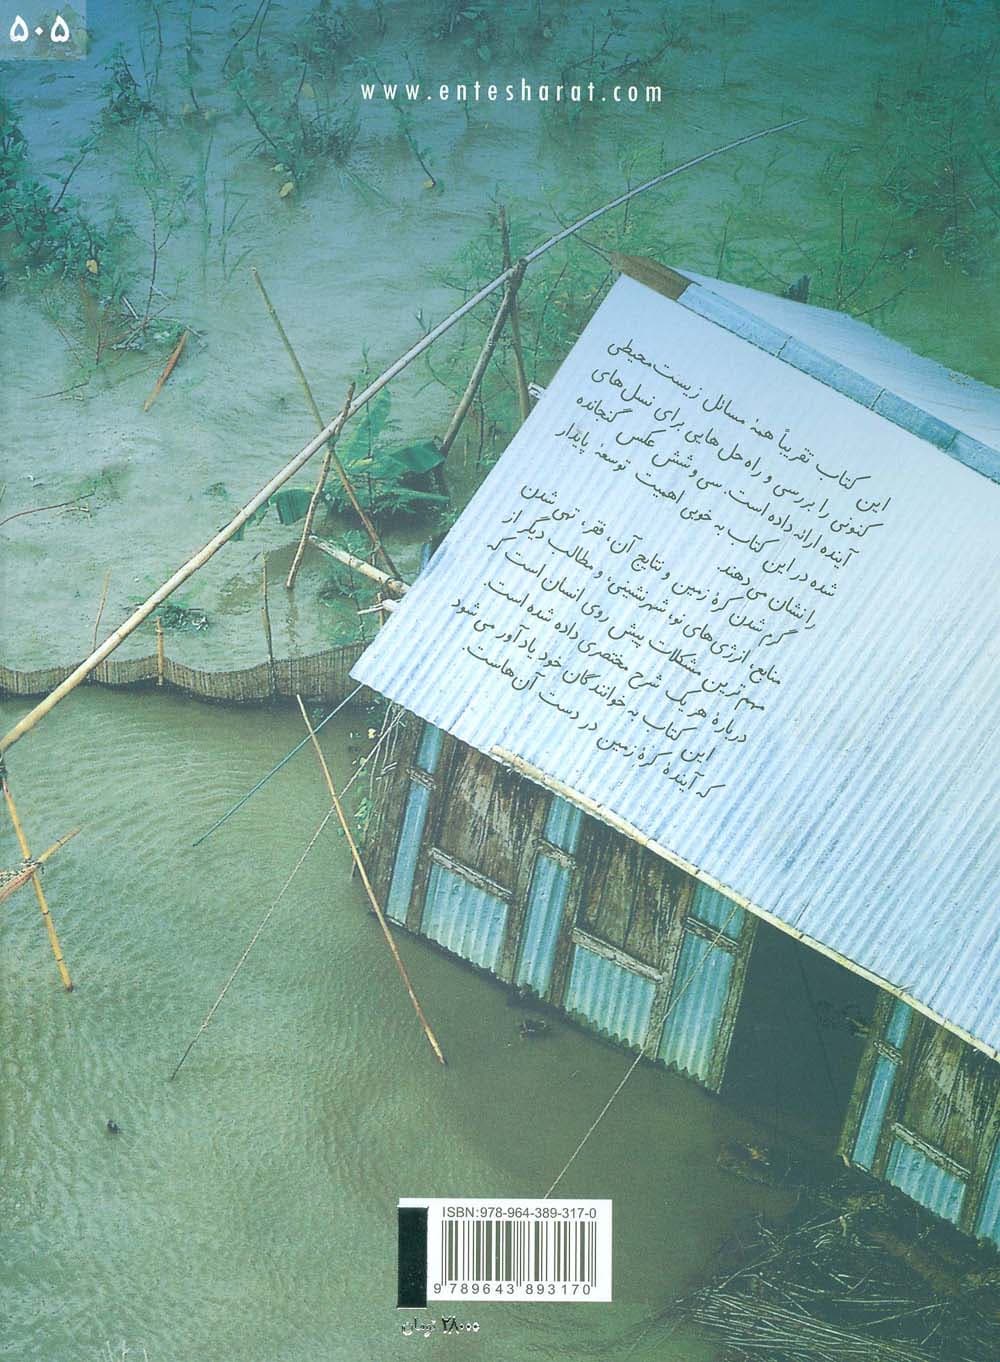 ۵۰۵
www.entesharat.com
این کتاب تقریباً همهٔ مسائل زیست‌محیطی
کنونی را بررسی و راه‌حل‌هایی برای نسل‌های
آینده ارائه داده است. سی و شش عکس گنجانده
شده در این کتاب به خوبی اهمیت توسعهٔ پایدار
را نشان می‌دهند.
گرم شدن کرهٔ زمین و نتایج آن، فقر، تهی شدن
منابع، انرژی‌های نو، شهرنشینی، و مطالب دیگر از
مهم‌ترین مشکلات پیش روی انسان است که
دربارهٔ هر یک شرح مختصری داده شده است.
این کتاب به خوانندگان خود یادآور می‌شود
که آیندهٔ کرهٔ زمین در دست آن‌هاست.
ISBN:978-964-389-317-0
9 789643 893170
۲۸۰۰۰ تومان